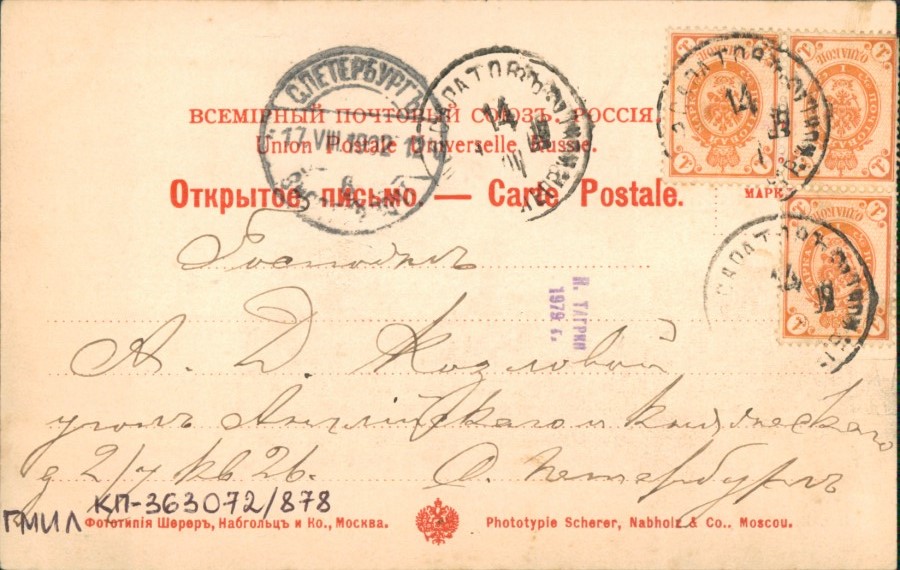 ВСЕМІРНЫЙ ПОЧТОВЫЙ СОЮЗЪ. РОССІЯ.
Union Postale Universelle. Russie.
Открытое письмо. — Carte Postale.
С.ПЕТЕРБУРГЪ
17.VIII.1902
САРАТОВЪ
14
САРАТОВЪ
14
САРАТОВЪ
МАРК
Госпожѣ
А. Д. Козловой
уголъ Англійскаго и
д 2/7 кв 26. С. Петербургъ
И. ТАГРИН
1979 г.
ГМИЛ КП-363072/878
Фототипія Шереръ, Набгольцъ и Ко., Москва.
Phototypie Scherer, Nabholz & Co., Moscou.